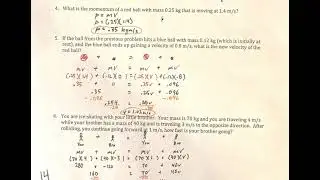 4. What is the momentum of a red ball with mass 0.25 kg that is moving at 1.4 m/s?
p = mV
p = (.25)(1.4)
p = .35 kg m/s
5. If the ball from the previous problem hits a blue ball with mass 0.12 kg (which is initially at
rest), and the blue ball ends up gaining a velocity of 0.8 m/s, what is the new velocity of the
red ball?
mv + mv = mv + mv
(.25)(1.4) + (.12)(0) = (.25)(V) + (.12)(.8)
.35 + 0 = .25V + .096
.35 = .25V + .096
-.096 -.096
6. You are ice skating with your little brother. Your mass is 70 kg and you are traveling 4 m/s
while your brother has a mass of 40 kg and is traveling 3 m/s in the opposite direction. After
colliding, you continue going forward at 1 m/s, how fast is your brother going?
You Bro You Bro
mv + mv = mv + mv
(70)(4) + (40)(-3) = (70)(1) + (40)(V)
280 + -120 = 70 + 40V
160 = 70 + 40V
14